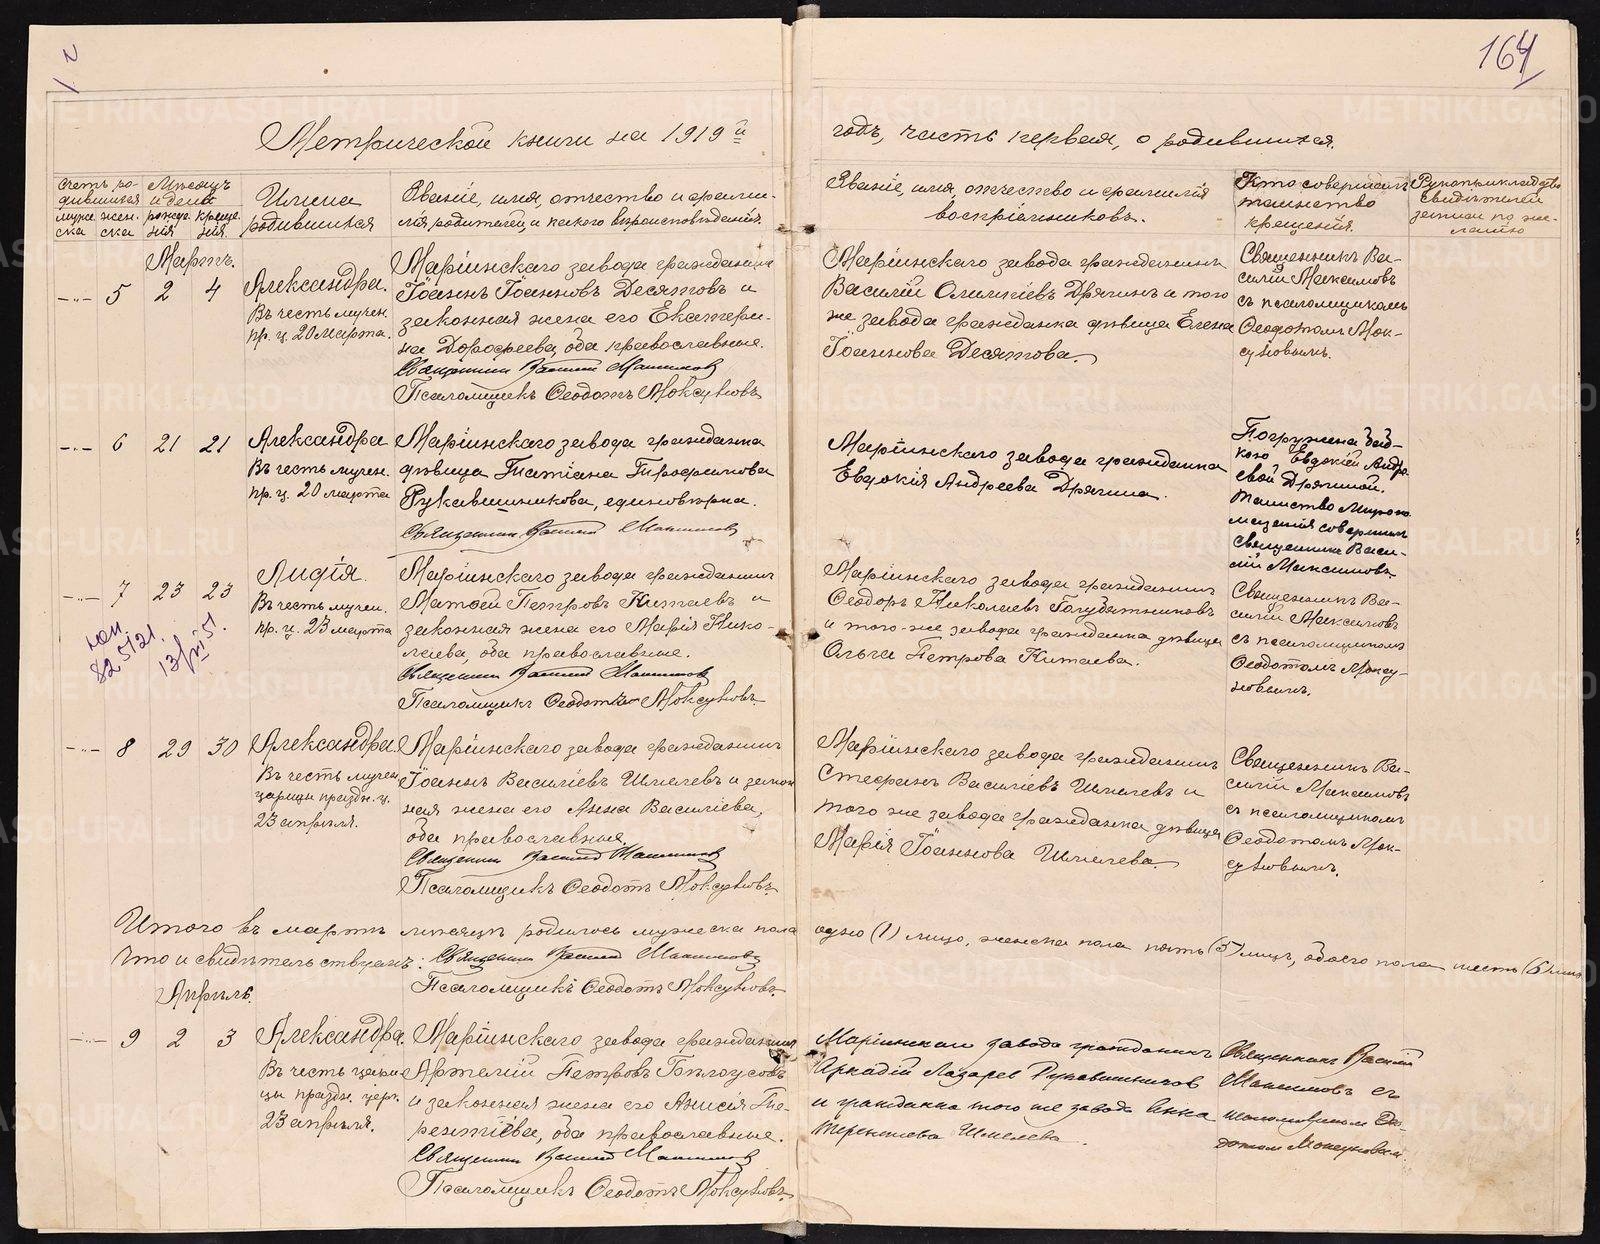 164
Метрической книги на 1919 й
годъ, часть первая, о родившихся.
Счетъ ро-
дившихся
муже
ска
жен-
ска
Мѣсяцъ
и день
рожде
нія
креще
нія.
Имена
родившихся
Званіе, имя, отчество и фами-
лія родителей, и какого вѣроисповѣданія.
Званіе, имя, отчество и фамилія
воспріемниковъ.
Кто совершалъ
таинство
крещенія.
Рукоприкладство
свидѣтелей
записи по же-
ланію
Мартъ.
5 2 4
Александра.
Въ честь мучен.
пр. ц. 20 марта.
Маріинскаго завода гражданинъ
Іоаннъ Іоанновъ Десятовъ и
законная жена его Екатери-
на Дорофеева, оба православные.
Священникъ Василій Максимовъ
Псаломщикъ Ѳеодотъ Мокрушинъ
Маріинскаго завода гражданинъ
Василій Дрягинъ и того
же завода гражданка дѣвица Елена
Іоаннова Десятова.
Священникъ Ва-
силій Максимовъ
съ псаломщикомъ
Ѳеодотомъ
6 21 21
Александра
Въ честь мучен.
пр. ц. 20 марта
Маріинскаго завода гражданка
дѣвица Татіана
Рукавишникова, единовѣрка.
Священникъ Василій Максимовъ
Маріинскаго завода гражданка
Евдокія Андреева Дрягина.
Погружена баб-
кою Евдокіей Андре
евой Дрягиной.
Таинство Мѵропо
мазанія совершилъ
священникъ Васи-
лій Максимовъ.
7 23 23
Лидія.
Въ честь мучен.
пр. ц. 23 марта
82 5121.
13/VI 51.
Маріинскаго завода гражданинъ
Матѳей Петровъ Китаевъ и
законная жена его Марія Нико-
лаева, оба православные.
Священникъ Василій Максимовъ
Псаломщикъ Ѳеодотъ
Маріинскаго завода гражданинъ
Ѳеодоръ Николаевъ Голубятниковъ
и того-же завода гражданка дѣвица
Ольга Петрова Китаева.
Священникъ Ва-
силій Максимовъ
съ псаломщикомъ
Ѳеодотомъ
8 29 30
Александра.
Въ честь мучен.
царицы праздн. ц.
23 апрѣля.
Маріинскаго завода гражданинъ
Іоаннъ Василіевъ Шмелевъ и закон
ная жена его Анна Василіева,
оба православные.
Священникъ Василій Максимовъ
Псаломщикъ Ѳеодотъ
Маріинскаго завода гражданинъ
Стефанъ Василіевъ Шмелевъ и
того же завода гражданка дѣвица
Марія Іоаннова Шмелева.
Священникъ Ва-
силій Максимовъ
съ псаломщикомъ
Ѳеодотомъ
Итого въ мартѣ мѣсяцѣ родилось мужеска пола
одно (1) лицо, женска пола пять (5) лицъ, обоего пола шесть (6) лицъ
Что и свидѣтельствуемъ: Священникъ Василій Максимовъ
Псаломщикъ Ѳеодотъ
Апрѣль.
9 2 3
Александра.
Въ честь цари
цы праздн. церк.
23 апрѣля.
Маріинскаго завода гражданинъ
Артемій Петровъ Бѣлоусовъ
и законная жена его Анисія Те-
рентіева, оба православные.
Священникъ Василій Максимовъ
Псаломщикъ Ѳеодотъ
Маріинскаго завода гражданинъ
Аркадій Лазаревъ Рукавишниковъ
и гражданка того же завода Анна
Терентіева Шмелева.
Священникъ Василій
Максимовъ съ
псаломщикомъ Ѳео-
дотомъ